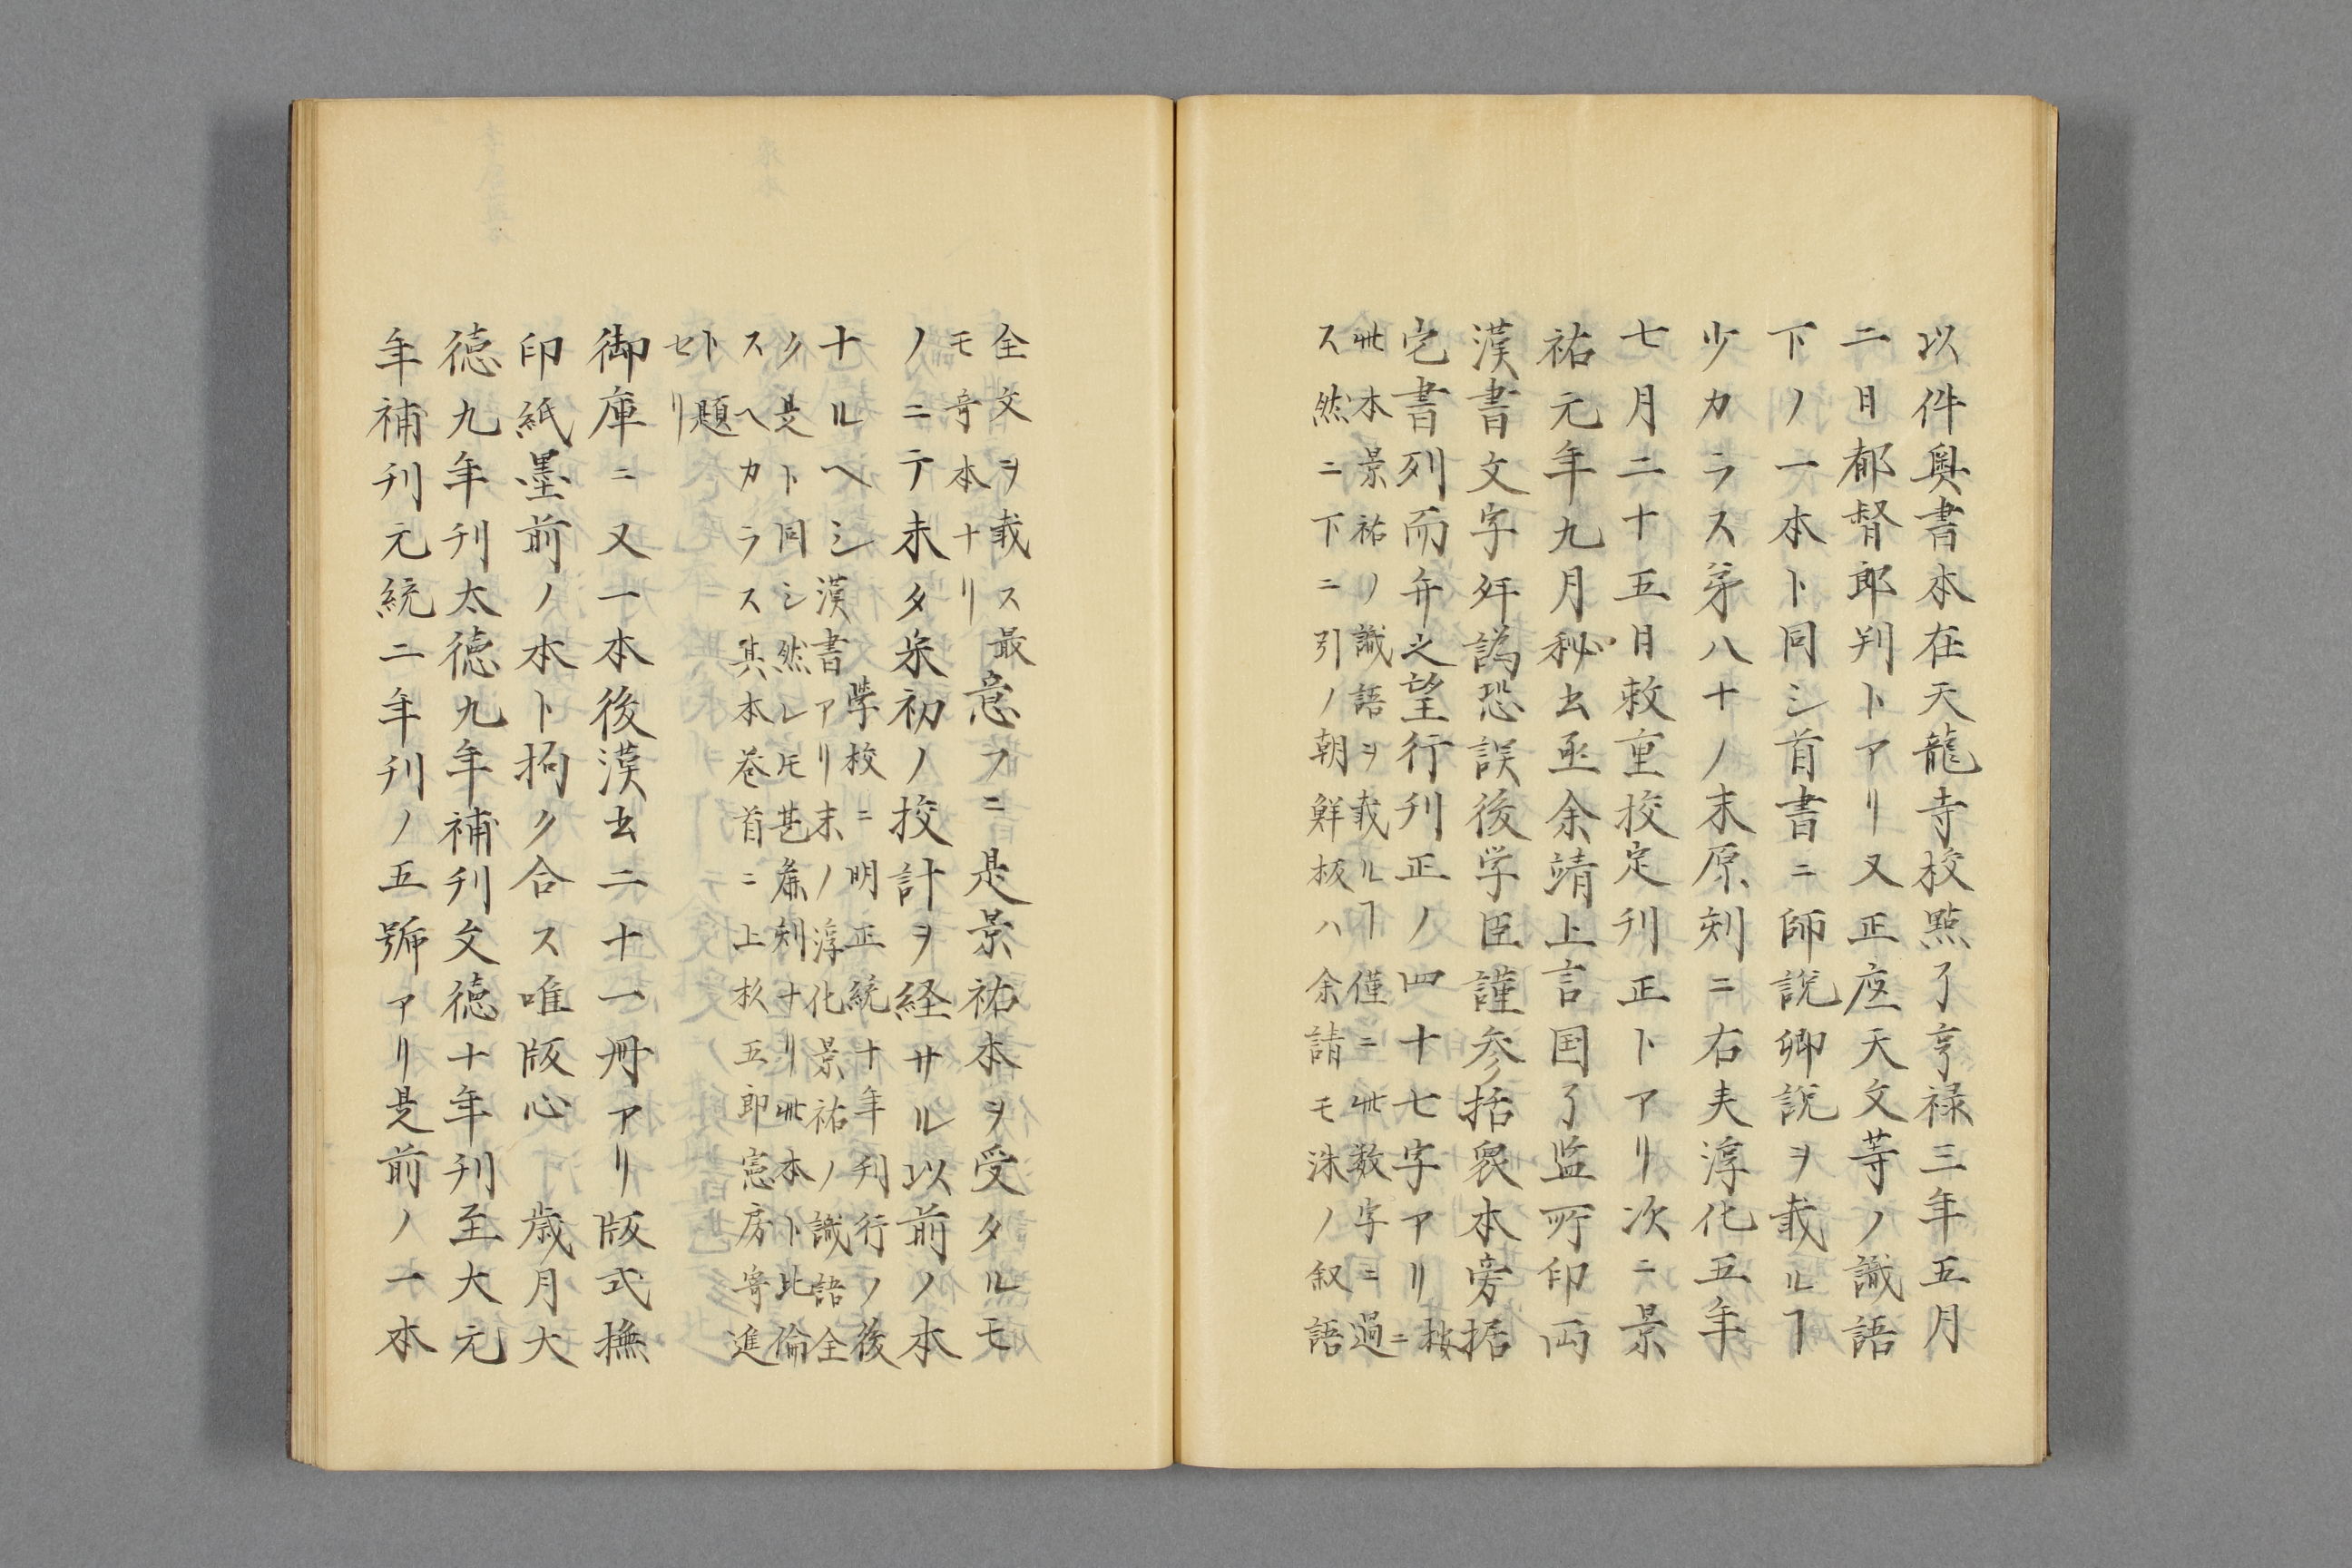 以件奥書本在天龍寺校點了亨禄三年五月
二日都督郎判トアリ又正庭天文等ノ識語
下ノ一本ト同シ首書ニ師説卿説ヲ載ルヿ
少カラス第八十ノ末原刻ニ右夫淳化五年
七月二十五日敕重校定刊正トアリ次ニ景
祐元年九月秘𡉏丞余靖上言国了监所印両
漢書文字舛譌恐誤後学臣謹参括衆本旁据
它書列而弁之望行刊正ノ四十七字アリ按ニ
此本景祐ノ識語ヲ載ルヿ僅ニ此数字ニ過
ス然ニ下ニ引ノ朝鮮板ハ余請モ洙ノ叙語
全文ヲ載ス最
モ竒本ナリ
意フニ是景祐本ヲ受タルモ
ノニテ未タ宋初ノ挍計ヲ経サル以前ノ本
ナルヘシ
学校ニ明正統十年刊行ノ後
漢書アリ末ノ淳化景祐ノ識語全
ク是ト同シ然レ𪜈甚麁刻ナリ此本ト比倫
スヘカラス其本巻首ニ上杦五郎憲房寄進
ト題
セリ
御庫ニ又一本後漢𡉏二十一冊アリ版式撫
印紙墨前ノ本ト拘ク合ス唯版心　歳月大
徳九年刊太徳九年補刊文徳十年刊至大元
年補刊元統二年刊ノ五號アリ是前ノ一本